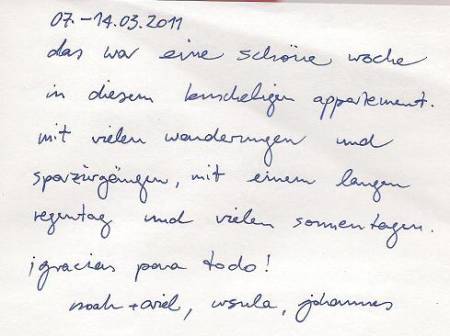 07.-14.03.2011
das war eine schöne woche
in diesem kuscheligen appartement.
mit vielen wanderungen und
spaziergängen, mit einem langen
regentag und vielen sonnentagen.
¡gracias para todo!
noah + ariel, ursula, johannes